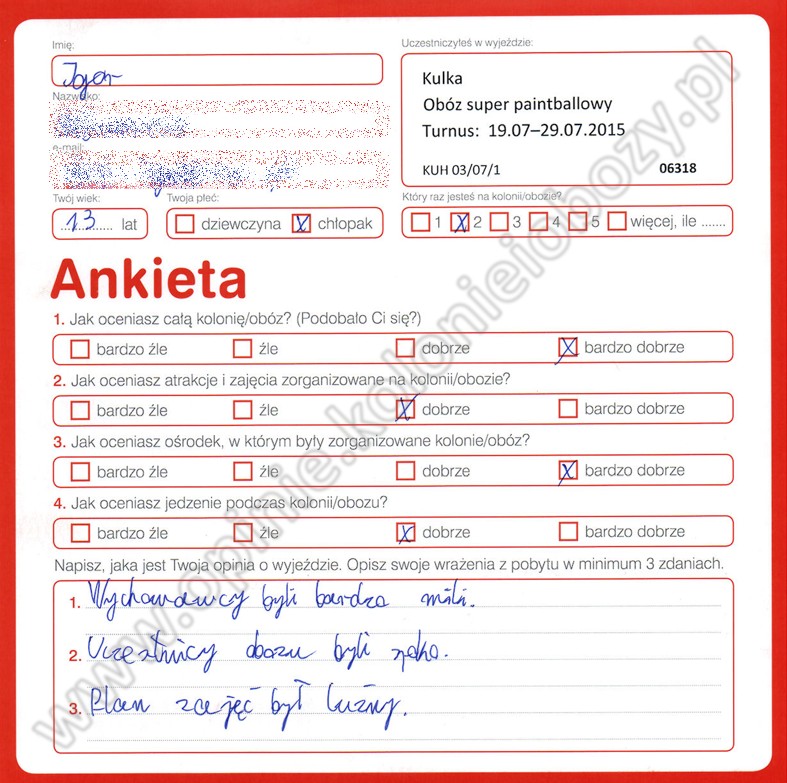 Imię:
Igor
Uczestniczyłeś w wyjeździe:
Kulka
Obóz super paintballowy
Turnus: 19.07–29.07.2015
KUH 03/07/1 06318
Nazwisko:
e-mail:
Twój wiek:
13 lat
Twoja płeć:
dziewczyna X chłopak
Który raz jesteś na kolonii/obozie?
1 X 2 3 4 5 więcej, ile .......
Ankieta
1. Jak oceniasz całą kolonię/obóz? (Podobało Ci się?)
bardzo źle źle dobrze X bardzo dobrze
2. Jak oceniasz atrakcje i zajęcia zorganizowane na kolonii/obozie?
bardzo źle źle X dobrze bardzo dobrze
3. Jak oceniasz ośrodek, w którym były zorganizowane kolonie/obóz?
bardzo źle źle dobrze X bardzo dobrze
4. Jak oceniasz jedzenie podczas kolonii/obozu?
bardzo źle źle X dobrze bardzo dobrze
Napisz, jaka jest Twoja opinia o wyjeździe. Opisz swoje wrażenia z pobytu w minimum 3 zdaniach.
1. Wychowawcy byli bardzo mili.
2. Uczestnicy obozu byli spoko.
3. Plan zajęć był luźny.
www.opinie.kolonieiobozy.pl